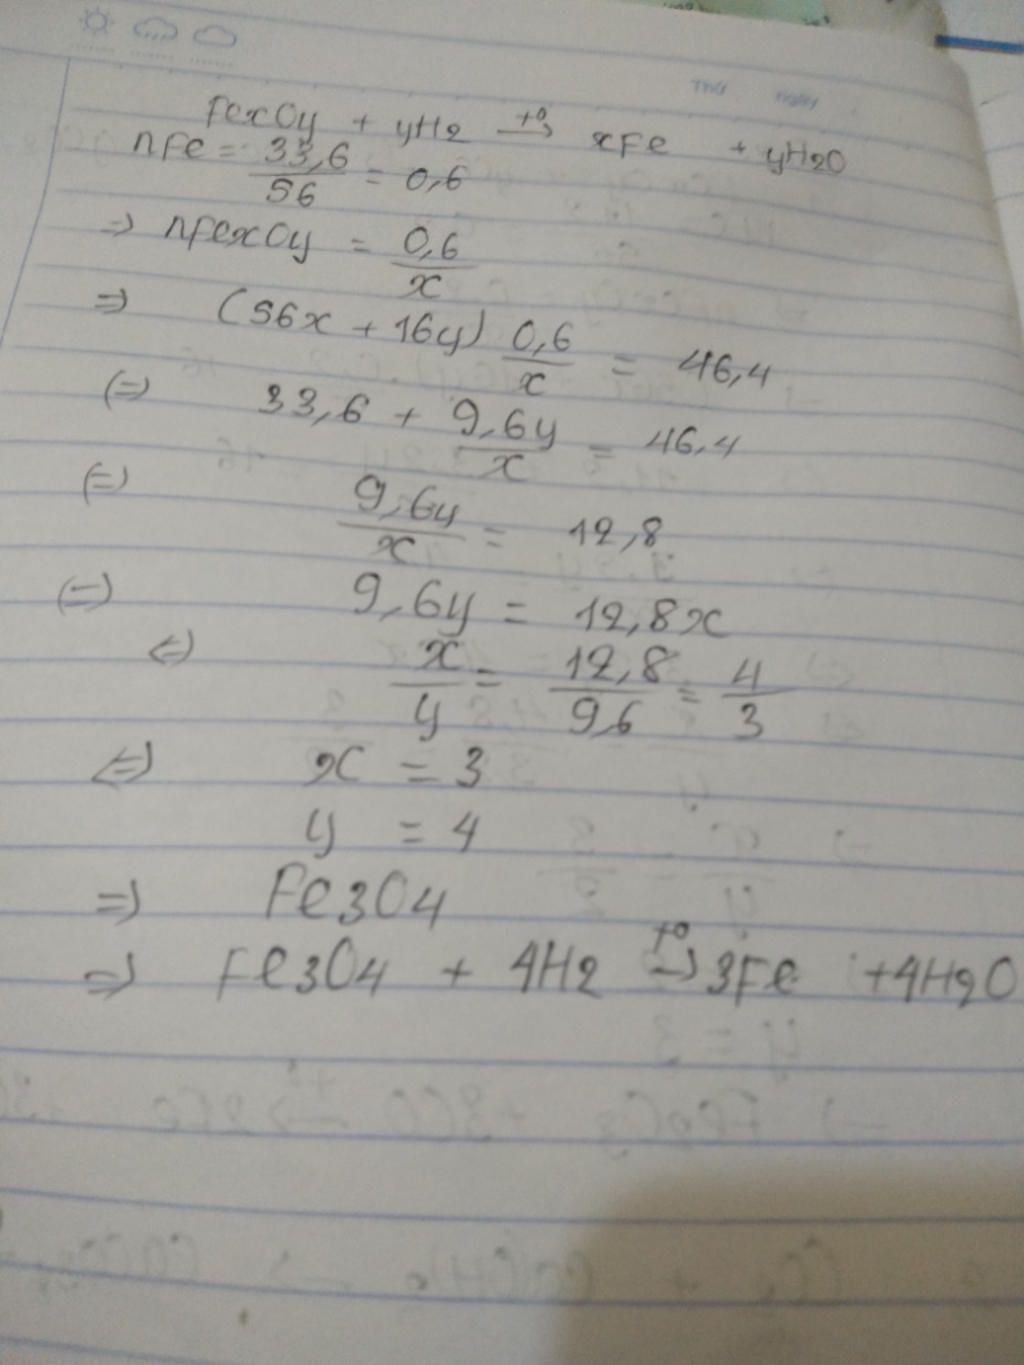 THỨ NGÀY
FexOy + yH2 →t° xFe + yH2O
nFe = 33,6/56 = 0,6
=> nFexOy = 0,6/x
=> (56x + 16y) 0,6/x = 46,4
(=) 33,6 + 9,6y/x = 46,4
(=) 9,6y/x = 12,8
(=) 9,6y = 12,8x
(=) x/y = 12,8/9,6 = 4/3
(=) x = 3
y = 4
=> Fe3O4
=> Fe3O4 + 4H2 →t° 3Fe + 4H2O